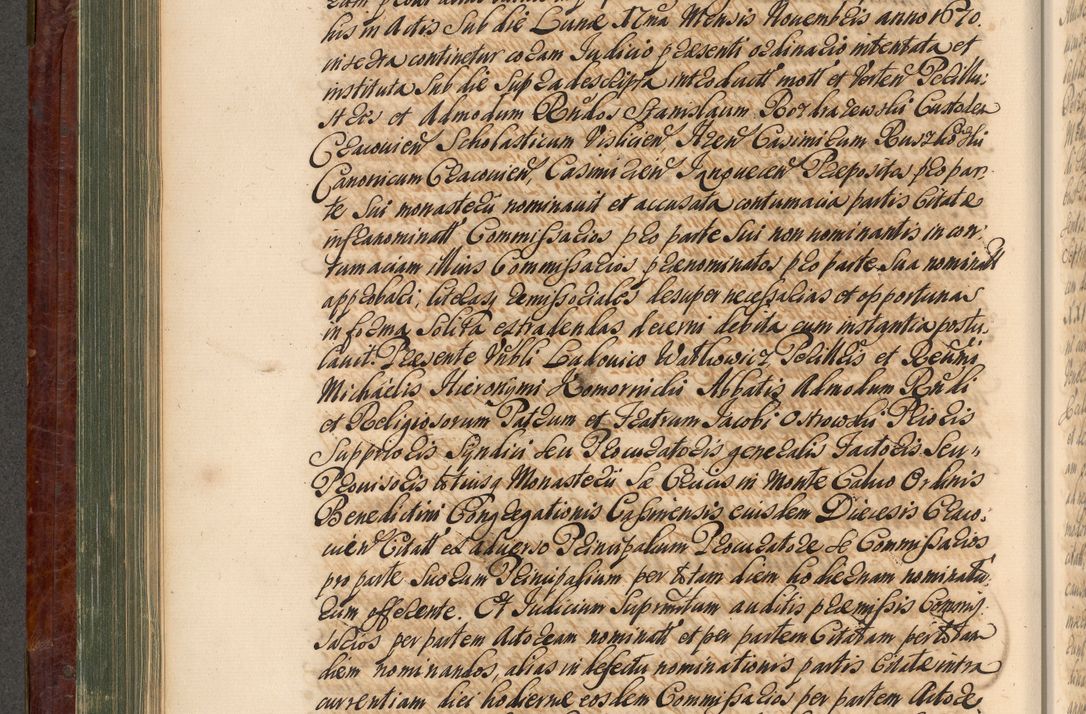 his in Actis Sub die Lunæ 17ma Mensis Novembris anno 1670
inserta continetur coram Judicio præsenti ordinario intentata et
instituta Sub die Supra descripta introducti mott et Vorten Perillu:
stris et Admodum Rndos Stanislaum Rozdrazewski Custodem
Cracovien Scholasticum Vislicien Nren Casimirum
Canonicum Cracovien, Casimirien Præpositos, pro par
te Sui monasterij nominavit et accusata contumacia partis Citatæ
infranominatt Commissarios pro parte Sui non nominantis in con,
tumaciam illius Commissarios prænominatos pro parte Sua nominatt
approbari, literasq remissoriales desuper necessarias et opportunas
in forma Solita extradendas decerni debita cum instantia postu,
lavit. Præsente Nobli Ludovico Watlowicz Perillris et Rndmi
Michaelis Hieronymi Komornicki Abbatis Admodum Rndi
et Religiosorum Patrum et Fratrum Jacobi Ostrowski Prioris
Supprioris Syndici Seu Procuratoris generalis Factoris Seu,,
Provisoris totiusq Monasterij Sæ Crucis in Monte Calvo Ordinis
Benedictini Congregationis Casinensis eiusdem Diœcesis Craco:
vien Citatt ex adverso Principalium Procuratore de Commissarios
pro parte Suorum Principalium per totam diem hodiernam nominatu,
rum offerente. Et Judicium Supremum auditis præmissis Commis,
sarios per partem Actoream nominatt et per partem Citatam per totam
diem nominandos, alias in defectu nominationis partis Citatæ intra
currentiam diei hodiernæ eosdem Commissarios per partem Actore,